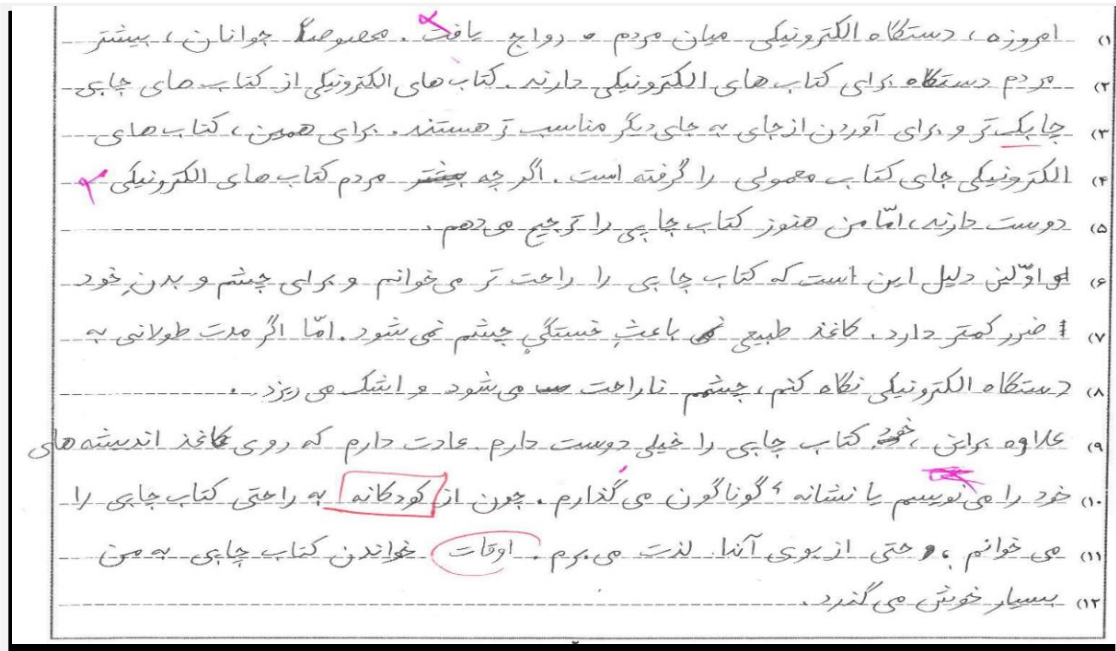 ۱) امروزه، دستگاه الکترونیکی میان مردم رواج یافت. مخصوصاً جوانان، بیشتر
۲) مردم دستگاه برای کتاب های الکترونیکی دارند. کتاب های الکترونیکی از کتاب های چاپی
۳) چابک تر و برای آوردن از جای به جای دیگر مناسب تر هستند. برای همین، کتاب های
۴) الکترونیکی جای کتاب معمولی را گرفته است. اگر چه بیشتر مردم کتاب های الکترونیکی
۵) دوست دارند، امّا من هنوز کتاب چاپی را ترجیح می دهم.
۶) اوّلین دلیل این است که کتاب چاپی را راحت تر می خوانم و برای چشم و بدنِ خود
۷) ضرر کمتر دارد. کاغذ طبیعی باعثِ خستگیِ چشم نمی شود. امّا اگر مدت طولانی به
۸) دستگاه الکترونیکی نگاه کنم، چشمم ناراحت می شود و اشک می ریزد.
۹) علاوه براین، خود کتاب چاپی را خیلی دوست دارم. عادت دارم که روی کاغذ اندیشه های
۱۰) خود را می نویسم یا نشانه ء گوناگون می گذارم. چون از کودکانه به راحتی کتاب چاپی را
۱۱) می خوانم، حتی از بوی آنها لذت می برم. اوقات خواندن کتاب چاپی به من
۱۲) بسیار خوش می گذرد.